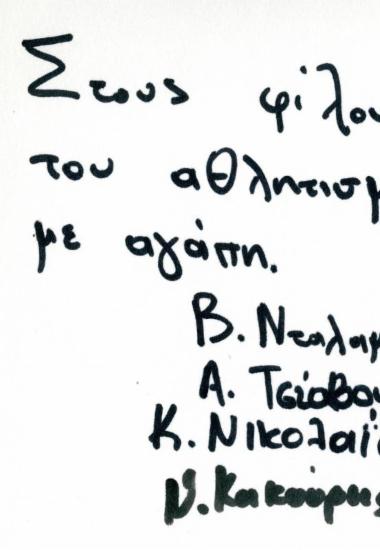 Στους φίλου
του αθλητισμ
με αγάπη.
Β. Νταλαμ
Α. Τσίοβου
Κ. Νικολαΐ